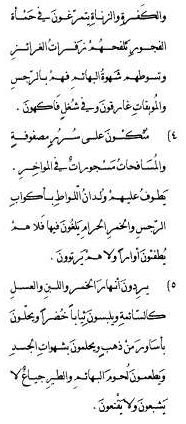 والكفرة والزناة يتمرغون في حمأة
الفجور تلفحهم زفرات الغرائز
وتسوطهم شهوة البهائم فهم بالرجس
والموبقات غارقون وفي شغل فاكهون .
٤) متكئون على سرر مصفوفة
والمسافحات مسجورات في المواخر .
يطوف عليهم ولدان اللواط بأكواب
الرجس والخمر الحرام يلغون فيها فلا هم
يطفئون أوارا ولا هم يرتوون .
٥) يردون أنهار الخمر واللبن والعسل
كالسائمة ويلبسون ثيابا خضرا ويحلون
بأساور من ذهب ويحلمون بشهوات الجسد
ويطعمون لحوم البهائم والطير جياع لا
يشبعون ولا يقنعون .